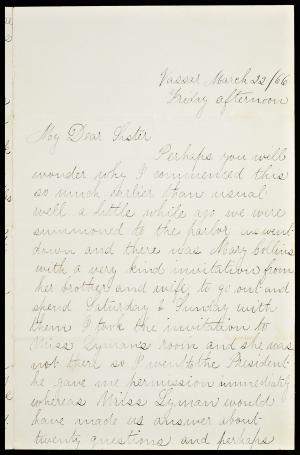 Vassar March 22/66
Friday afternoon
My Dear Sister
Perhaps you will
wonder why I commenced this
so much earlier than usual
well a little while ago we were
summoned to the parlor us went
down and there was Mary Collins
with a very kind invitation from
her brother and wife, to go out and
spend Saturday & Sunday with
them I took the invitation to
Miss Lyman's room and she was
not there so I went to the President
he gave me permission immediately
whereas Miss Lyman would
have made us answer about
twenty questions and perhaps